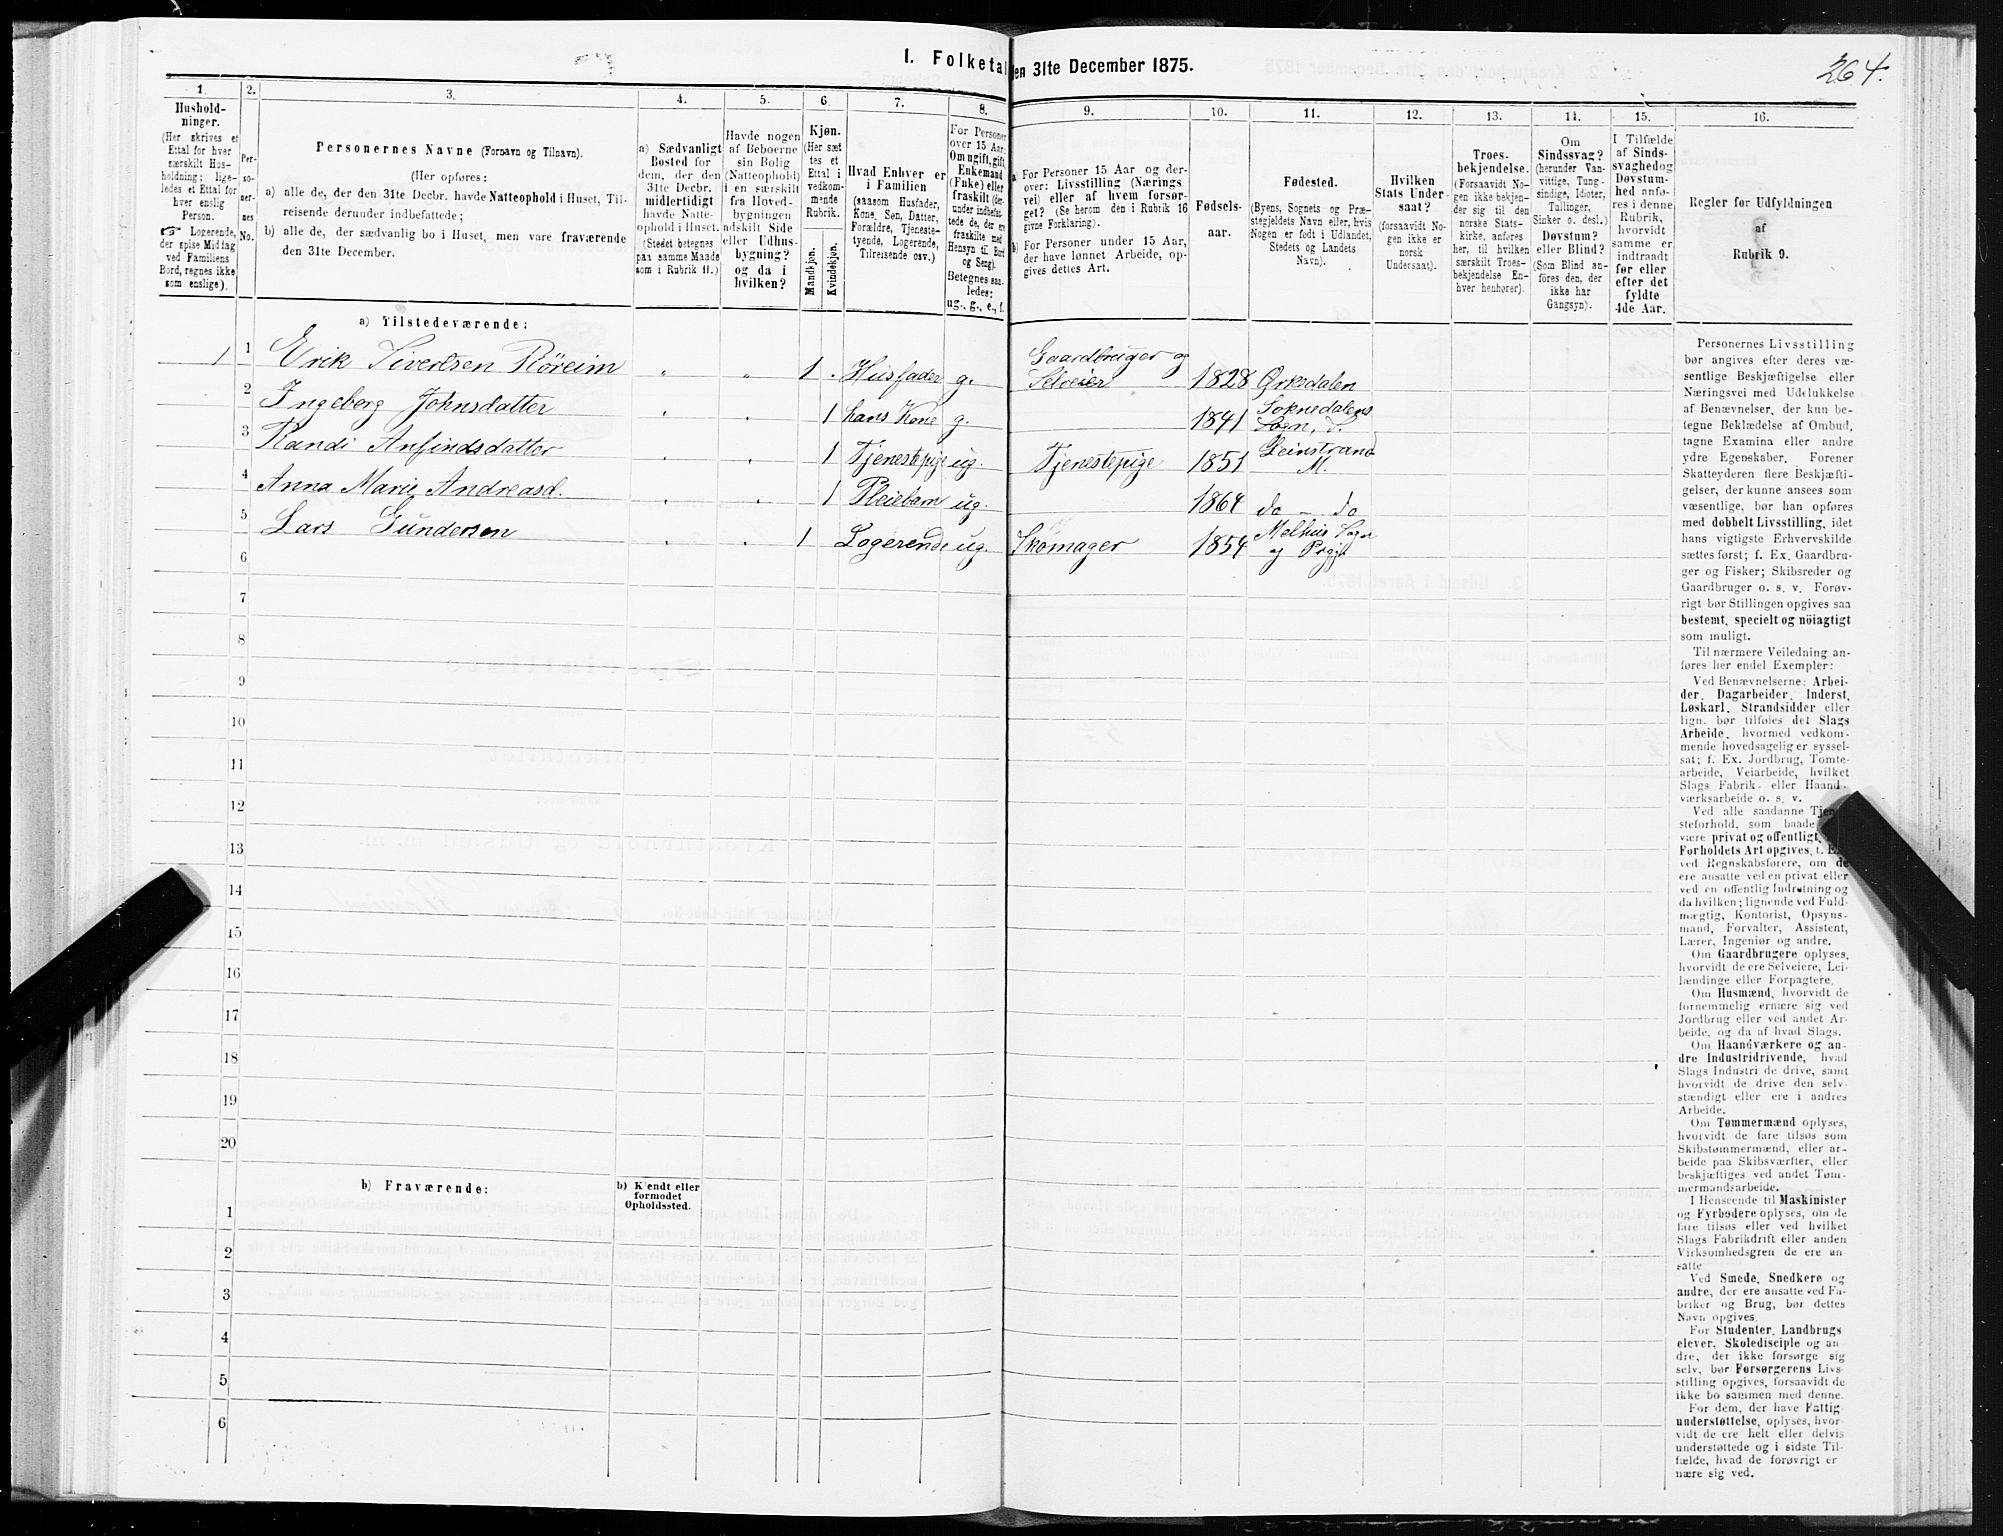 264.
1. Folketal den 31te December 1875.
1. 2. 3. 4. 5. 6. 7. 8. 9. 10. 11. 12. 13. 14. 15. 16.
Hushold-
ninger.
(Her skrives et
Ettal for hver
særskilt Hus-
holdning; lige-
ledes et Ettal for
hver enslig
Person.
☞ Logerende,
der spise Middag
ved Familiens
Bord, regnes ikke
som enslige).
Per-
so-
ner-
nes
No.
Personernes Navne (Fornavn og Tilnavn).
(Her opføres:
a) alle de, der den 31te Decbr. havde Natteophold i Huset, Til-
reisende derunder indbefattede;
b) alle de, der sædvanlig bo i Huset, men vare fraværende
den 31te December.
a) Sædvanligt
Bosted for
dem, der den
31te Decbr.
midlertidigt
havde Natte-
ophold i Huset.
(Stedet betegnes
paa samme Maade
som i Rubrik 11.)
Havde nogen
af Beboerne
sin Bolig
(Natteophold)
i en særskilt
fra Hoved-
bygningen
adskilt Side
eller Udhus-
bygning?
og da i
hvilken?
Kjøn.
(Her sæt-
tes et
Ettal i
vedkom-
mende
Rubrik.
Mandkjøn.
Kvindekjøn.
Hvad Enhver er
i Familien
(saasom Husfader,
Kone, Søn, Datter,
Forældre, Tjeneste-
tyende, Logerende,
Tilreisende osv.)
For Personer
over 15 Aar:
Om ugift, gift,
Enkemand
(Enke) eller
fraskilt (der-
under indbefat-
tede de, der ere
fraskilte med
Hensyn til Bord
og Seng).
Betegnes saa-
ledes:
ug., g., e., f.
a) For Personer 15 Aar og der-
over: Livsstilling (Nærings
vei) eller af hvem forsør-
get? (Se herom den i Rubrik 16
givne Forklaring).
b) For Personer under 15 Aar,
der have lønnet Arbeide, op-
gives dettes Art.
Fødsels-
aar.
Fødested.
(Byens, Sognets og Præ-
stegjeldets Navn eller, hvis
Nogen er født i Udlandet,
Stedets og Landets
Navn).
Hvilken
Stats Under
saat?
(forsaavidt No-
gen ikke er
norsk
Undersaat).
Troes-
bekjendelse.
(Forsaavidt No-
gen ikke bekjen-
der sig til den
norske Stats-
kirke, anføres
her, til hvilken
særskilt Troes-
bekjendelse En-
hver henhører).
Om
Sindssvag?
(herunder Van-
vittige, Tung-
sindige, Idioter,
Tullinger,
Sinker o. desl.)
Døvstum?
eller Blind?
(Som Blind an-
føres den, der
ikke har
Gangsyn).
I Tilfælde
af Sinds-
svaghed og
Døvstum-
hed anfø-
res i denne
Rubrik,
hvorvidt
samme er
indtraadt
før eller
efter det
fyldte
4de Aar.
Regler for Udfyldningen
af
Rubrik 9.
a) Tilstedeværende:
1 1 Erik Sivertsen Röreim " " 1 . Husfader g. Gaardbruger og Selveier 1828 Ørkedalen
2 Ingeborg Johnsdatter " " 1 hans Kone g. 1841 Soknedalens Sogn, S.
3 Randi Anfindsdatter " " 1 Tjenestepige ug. Tjenestepige 1851 Leinstrand M.
4 Anna Marie Andreasd. " " 1 Pleiebarn ug. 1864 do - do
5 Lars Gundersen " " 1 Logerende ug. Skomager 1854 Melhus Sogn og Prgj.
6
7
8
9
10
11
12
13
14
15
16
17
18
19
20
b) Fraværende:
b) Kjendt eller
formodet
Opholdssted.
1
2
3
4
5
6
Personernes Livsstilling
bør angives efter deres væ-
sentlige Beskjæftigelse eller
Næringsvei med Udelukkelse
af Benævnelser, der kun be-
tegne Beklædelse af Ombud,
tagne Examina eller andre
ydre Egenskaber. Forener
Skatteyderen flere Beskjæfti-
gelser, der kunne ansees som
væsentlige, bør han opføres
med dobbelt Livsstilling, idet
hans vigtigste Erhvervskilde
sættes først; f. Ex. Gaardbru-
ger og Fisker; Skibsreder og
Gaardbruger o. s. v. Forøv-
rigt bør Stillingen opgives saa
bestemt, specielt og nöiagtigt
som muligt.
Til nærmere Veiledning an-
føres her endel Exempler:
Ved Benævnelserne: Arbei-
der, Dagarbeider, Inderst,
Løskarl, Strandsidder eller
lign. bør tilføies det Slags
Arbeide, hvormed vedkom-
mende hovedsagelig er syssel-
sat; f. Ex. Jordbrug, Tomte-
arbeide, Veiarbeide, hvilket
Slags Fabrik- eller Haand-
værksarbeide o. s. v.
Ved alle saadanne Tjene-
steforhold, som baade
være privat og offentligt,
Forholdets Art opgives, f. Ex.
ved Regnskabsførere, om de
ere ansatte ved en privat eller
ved en offentlig Indretning og
da hvilken; lignende ved Fuld-
mægtig, Kontorist, Opsyns-
mand, Forvalter, Assistent,
Lærer, Ingeniør og andre.
Om Gaardbrugere oplyses,
hvorvidt de ere Selveiere, Lei-
lændinge eller Forpagtere.
Om Husmænd, hvorvidt de
fornemmelig ernære sig ved
Jordbrug eller ved andet Ar-
beide, og da af hvad Slags.
Om Haandværkere og an-
dre Industridrivende, hvad
Slags Industri de drive, samt
hvorvidt de drive den selv-
stændigt eller ere i andres
Arbeide.
Om Tømmermænd oplyses,
hvorvidt de fare tilsøs som
Skibstømmermænd, eller ar-
beide paa Skibsværfter, eller
beskjæftiges ved andet Tøm-
mermandsarbeide.
I Henseende til Maskinister
og Fyrbødere oplyses, om de
fare tilsøs eller ved hvilket
Slags Fabrikdrift eller anden
Virksomhedsgren de ere an
satte
Ved Smede, Snedkere og
andre, der ere ansatte ved Fa-
briker og Brug, bør dettes
Navn opgives.
For Studenter, Landbrugs
elever, Skoledisciple og an
dre, der ikke forsørge sig
selv, bør Forsørgerens Livs-
stilling opgives, forsaavidt de
ikke bo sammen med denne.
For dem, der have Fattig
understøttelse, oplyses, hvor-
vidt de ere helt eller delvis
understøttede og i sidste Til-
fælde, hvad de forøvrigt er
nære sig ved.